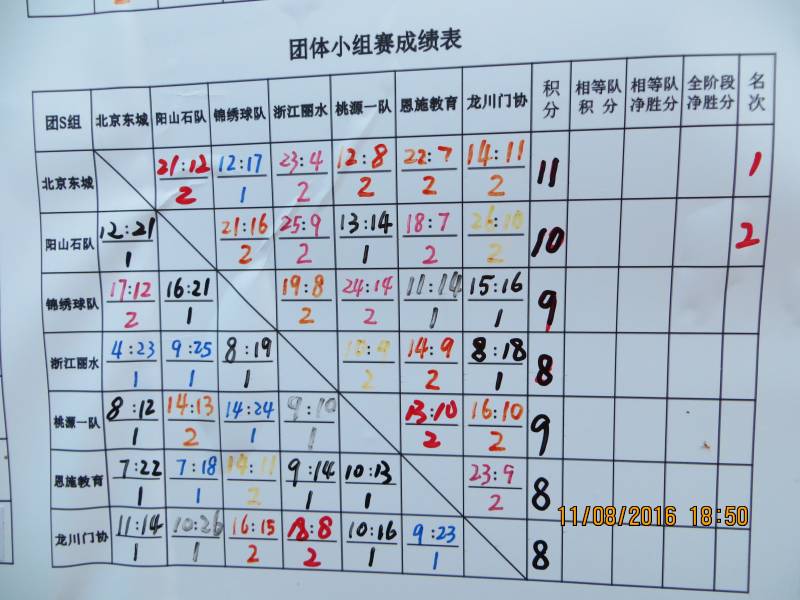 团体小组赛成绩表
团S组 北京东城 阳山石队 锦绣球队 浙江丽水 桃源一队 恩施教育 龙川门协 积分 相等队积分 相等队净胜分 全阶段净胜分 名次
北京东城 21:12 12:17 23:4 12:8 22:7 14:11 11 1
2 1 2 2 2 2
阳山石队 12:21 21:16 25:9 13:14 18:7 26:10 10 2
1 2 2 1 2 2
锦绣球队 17:12 16:21 19:8 24:14 11:14 15:16 9
2 1 2 2 1 1
浙江丽水 4:23 9:25 8:19 10:9 14:9 8:18 8
1 1 1 2 2 1
桃源一队 8:12 14:13 14:24 9:10 13:10 16:10 9
1 2 1 1 2 2
恩施教育 7:22 7:18 14:11 9:14 10:13 23:9 8
1 1 2 1 1 2
龙川门协 11:14 10:26 16:15 18:8 10:16 9:23 8
1 1 2 2 1 1
11/08/2016 18:50